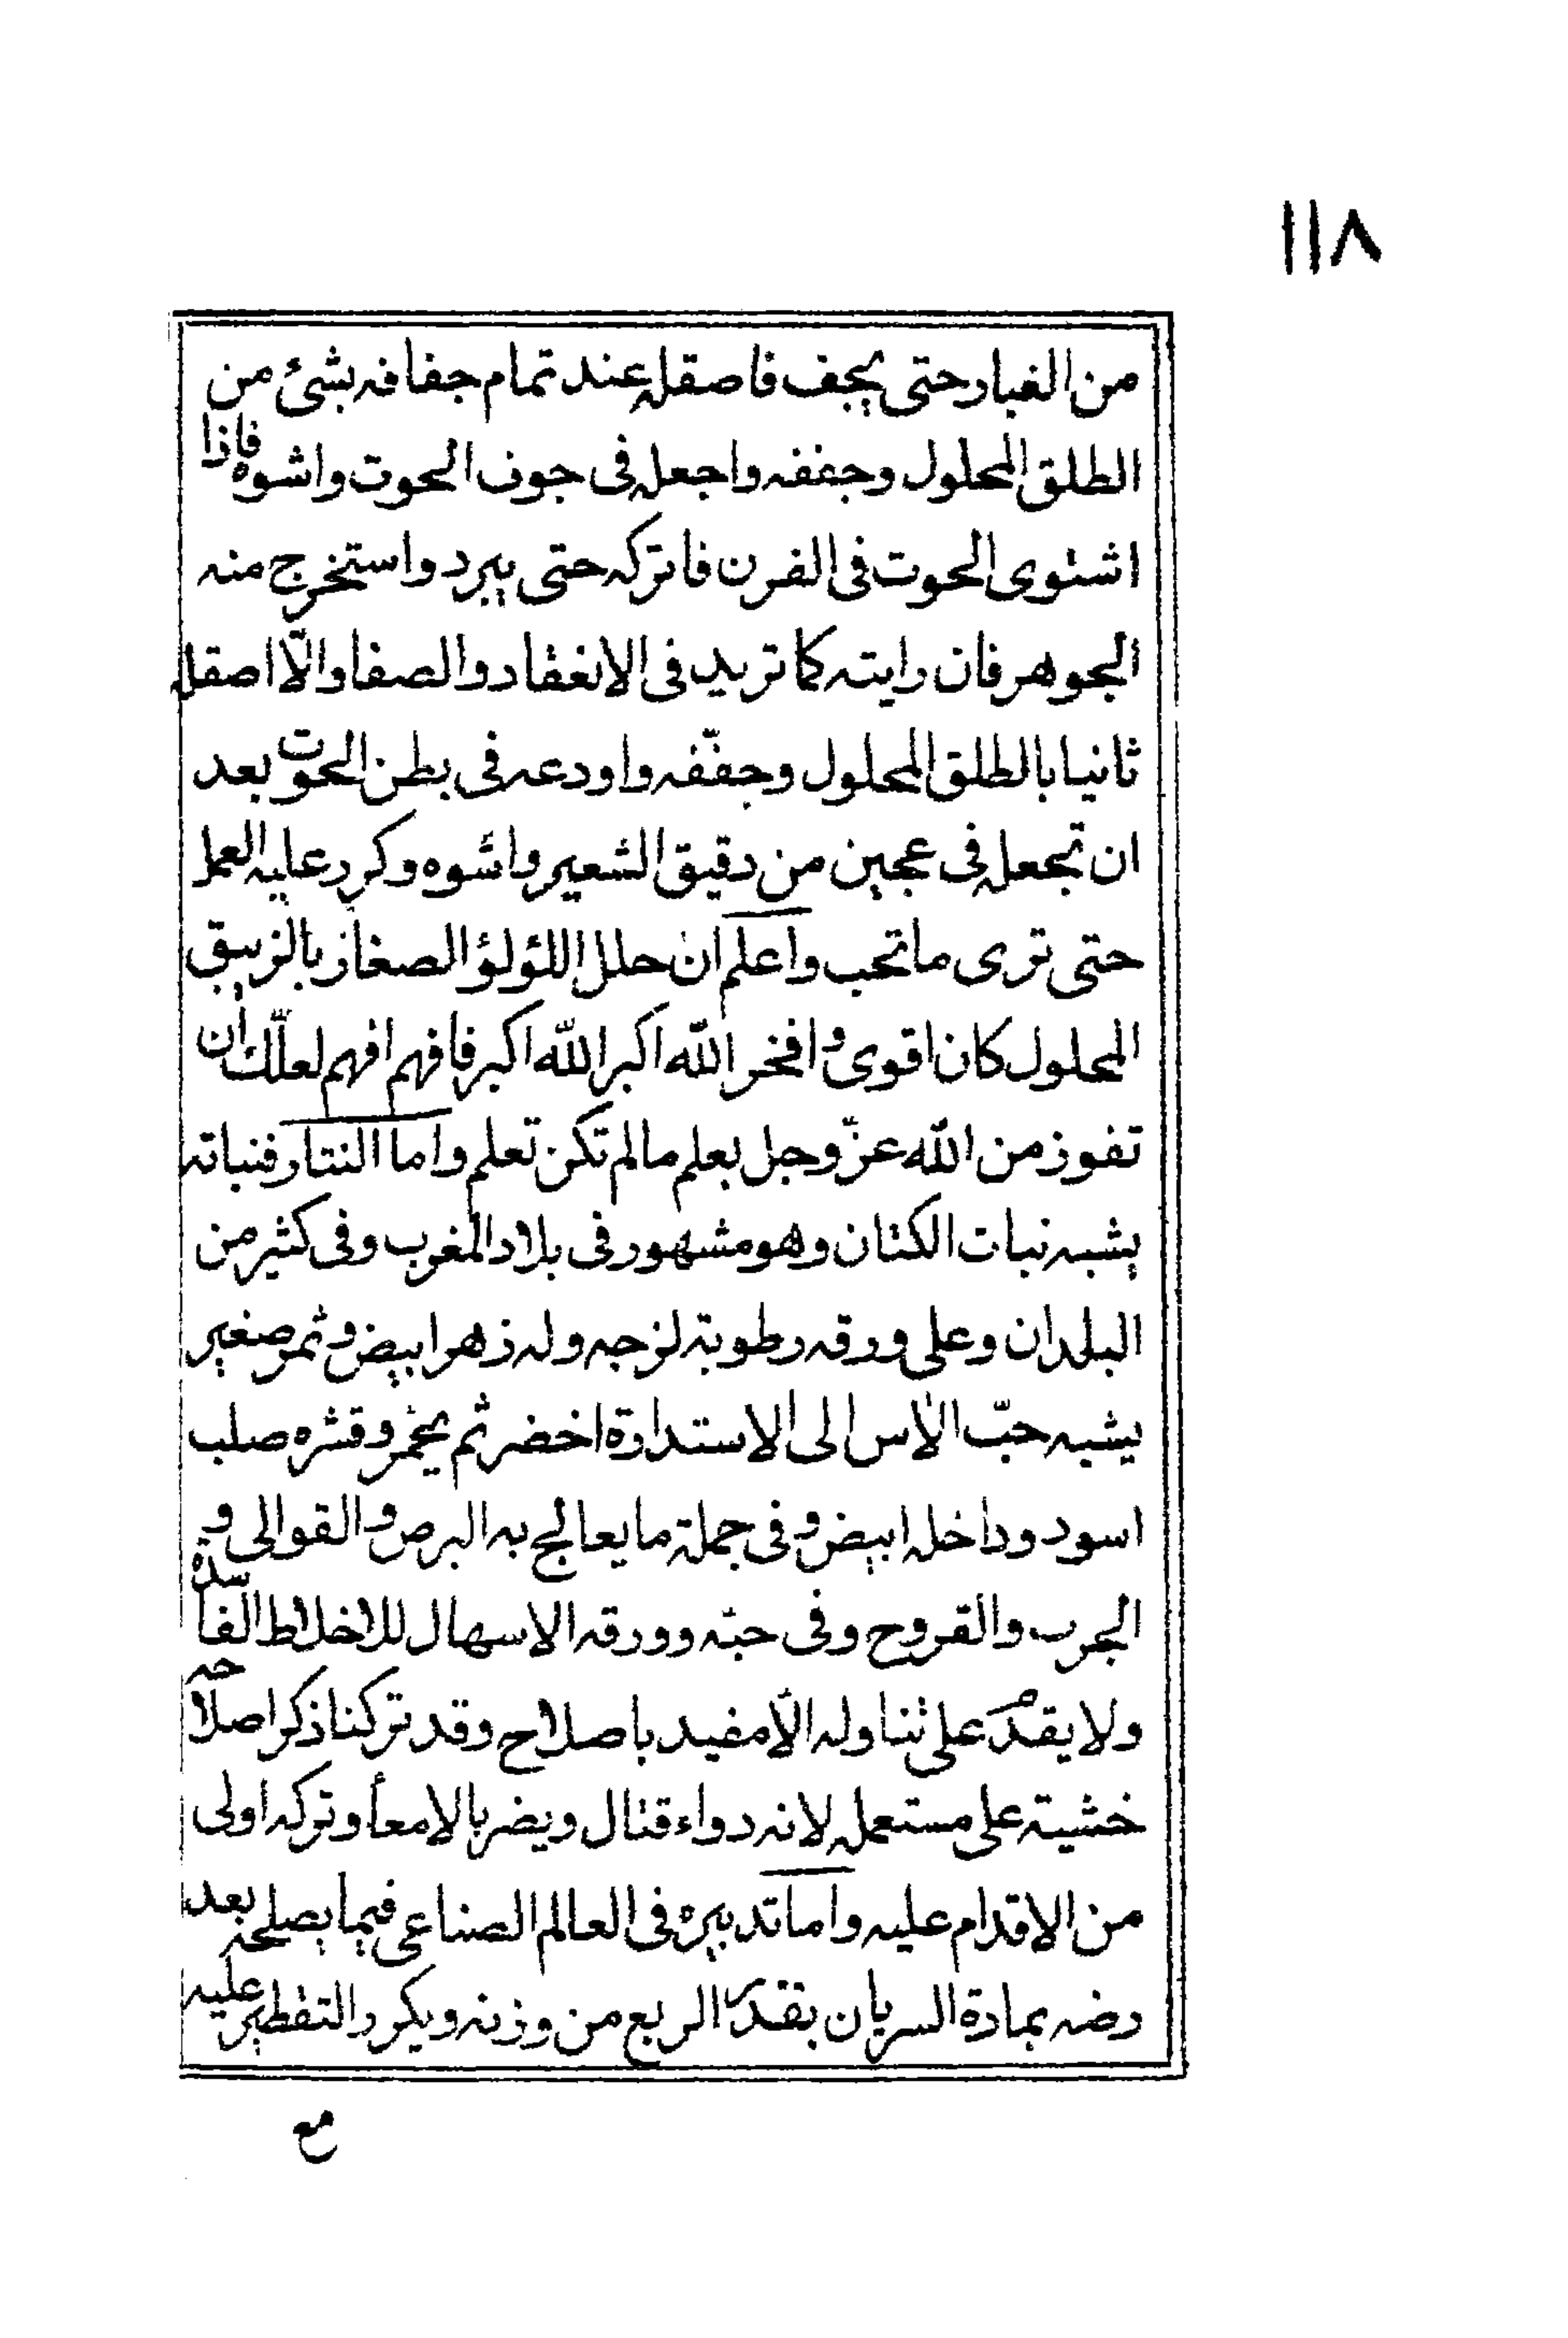 ١١٨
من الغبار حتى يجف فاصقله عند تمام جفافه بشئ من
الطلق المحلول وجففه واجعله فى جوف الحوت واشوه فاذا
اشتوى الحوت فى الفرن فاتركه حتى يبرد واستخرج منه
الجوهر فان رايته كما تريد فى الانعقاد والصفا والّا اصقله
ثانيا بالطلق المحلول وجفّفه واودعه فى بطن الحوت بعد
ان تجعله فى عجين من دقيق الشعير واشوه وكرر عليه العمل
حتى ترى ما تحب واعلم ان حلل اللؤلؤ الصغار بالزيبق
المحلول كان اقوى وافخر الله اكبر الله اكبر فافهم افهم لعلّك ان
تفوز من الله عزّ وجل بعلم مالم تكن تعلم واما النتار فنباته
يشبه نبات الكتان وهو مشهور فى بلاد المغرب وفى كثير من
البلدان وعلى ورقه رطوبة لزجه وله زهر ابيض وثمر صغير
يشبه حبّ الآس الى الاستدارة اخضر ثم يحمر وقشره صلب
اسود وداخله ابيض وفى جملة ما يعالج به البرص والقوالى و
الجرب والقروح وفى حبّه وورقه الاسهال للاخلاط الفاسدة
ولا يقدم على تناوله الّا مفيد باصلاح وقد تركنا ذكر اصلاحه
خشية على مستعمله لانه دواء قتال ويضر بالامعأ وتركه اولى
من الاقدام عليه واما تدبيره فى العالم الصناعى فيما يصلحه بعد
رضه بمادة السريان بقدر الربع من وزنه ويكرر التفطير عليه
مع